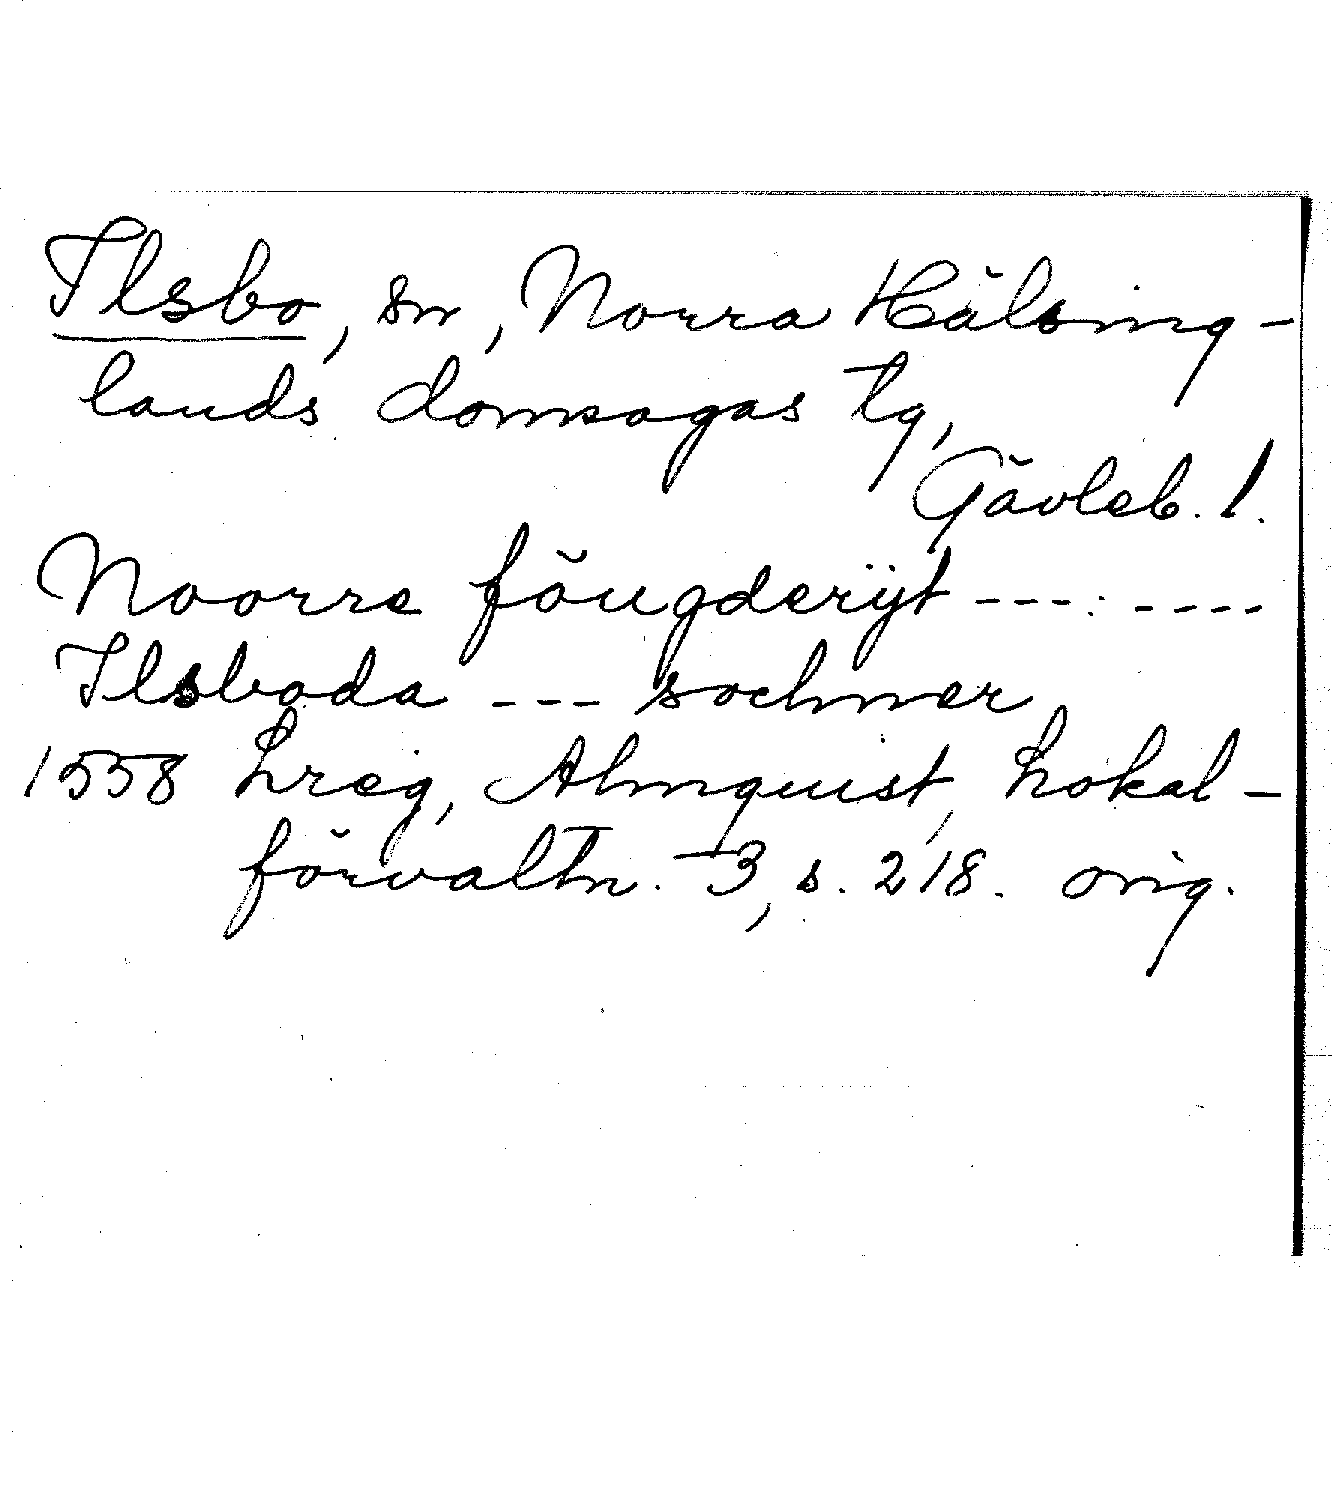 Ilsbo, sn, Norra Hälsing-
lands domsagas tg,
Gävleb. l.
Noorre föugderÿt ---.---
Ilsboda --- sochner
1558 Lreg, Almquist, Lokal-
förvaltn. 3, s. 218. orig.